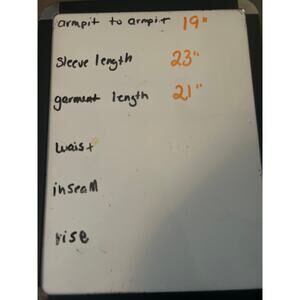 armpit to armpit 19"
sleeve length 23"
garment length 21"
waist
inseam
rise